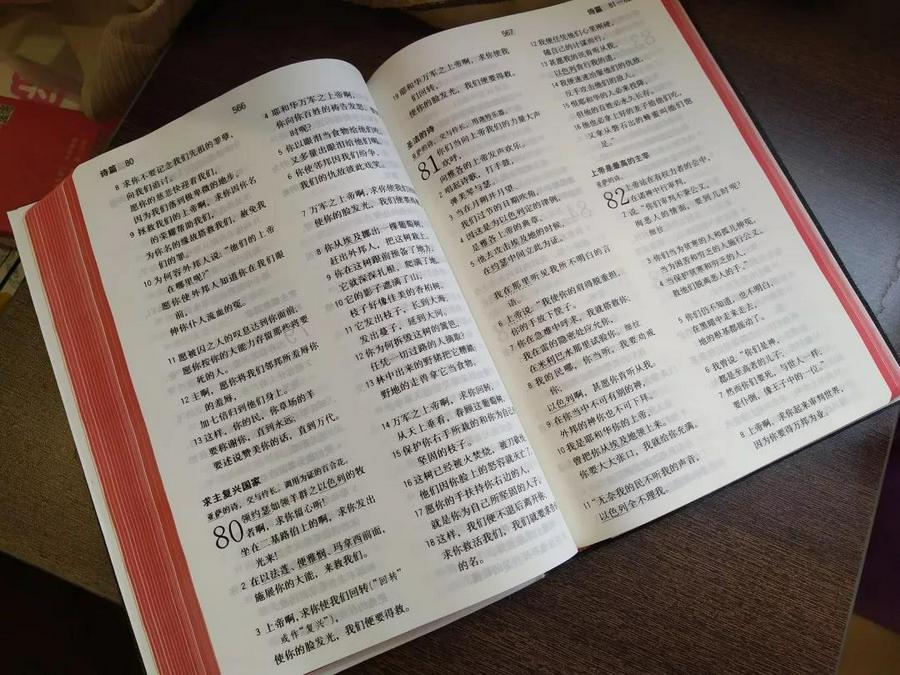 诗篇 80
566
8 求你不要记念我们先祖的罪孽,
向我们追讨。
愿你的慈悲快迎着我们,
因为我们落到极卑微的地步。
9 拯救我们的上帝啊,求你因你名
的荣耀帮助我们,
为你名的缘故搭救我们,赦免我
们的罪。
10 为何容外邦人说:“他们的上帝
在哪里呢?”
愿你使外邦人知道你在我们眼
前,
伸你仆人流血的冤。
11 愿被囚之人的叹息达到你面前,
愿你按你的大能力存留那些将要
死的人。
12 主啊,愿你将我们邻邦所羞辱你
的羞辱,
加七倍归到他们身上。
13 这样,你的民,你草场的羊
要称谢你,直到永远,
要述说赞美你的话,直到万代。
求主复兴国家
亚萨的诗,交与伶长。调用为证的百合花。
80 领约瑟如领羊群之以色列的牧
者啊,求你留心听!
坐在二基路伯上的啊,求你发出
光来!
2 在以法莲、便雅悯、玛拿西前面,
施展你的大能,来救我们。
3 上帝啊,求你使我们回转(“回转”
或作“复兴”),
使你的脸发光,我们便要得救。
4 耶和华万军之上帝啊,
你向你百姓的祷告发怒,
时呢?
5 你以眼泪当食物给他们吃,
又多量出眼泪给他们喝。
6 你使邻邦因我们纷争,
我们的仇敌彼此戏笑。
7 万军之上帝啊,求你使我们回
使你的脸发光,我们便要得
8 你从埃及挪出一棵葡萄树,
赶出外邦人,把这树栽上。
9 你在这树跟前预备了地方,
它就深深扎根,爬满了地。
10 它的影子遮满了山,
枝子好像佳美的香柏树。
11 它发出枝子,长到大海,
发出蔓子,延到大河。
12 你为何拆毁这树的篱笆,
任凭一切过路的人摘取,
13 林中出来的野猪把它糟蹋,
野地的走兽拿它当食物。
14 万军之上帝啊,求你回转,
从天上垂看,眷顾这葡萄树,
15 保护你右手所栽的和你为自己
坚固的枝子。
16 这树已经被火焚烧,被刀砍
他们因你脸上的怒容就灭亡
17 愿你的手扶持你右边的人,
就是你为自己所坚固的人子。
18 这样,我们便不退后离开你,
求你救活我们,我们就要求告
的名。
567
诗篇 81—
19 耶和华万军之上帝啊,求你使我
们回转,
使你的脸发光,我们便要得救。
圣洁的诗
亚萨的诗,交与伶长。用迦特乐器。
81 你们当向上帝我们的力量大声
欢呼,
向雅各的上帝发声欢乐。
2 唱起诗歌,打手鼓,
弹美琴与瑟。
3 当在月朔并月望——
我们过节的日期吹角,
4 因这是为以色列定的律例,
是雅各上帝的典章。
5 他去攻击埃及地的时候,
在约瑟中间立此为证。
我在那里听见我所不明白的言
语:
6 上帝说:“我使你的肩得脱重担,
你的手放下筐子。
7 你在急难中呼求,我就搭救你;
我在雷的隐密处应允你,
在米利巴水那里试验你。细拉
8 我的民哪,你当听,我要劝戒
你;
以色列啊,甚愿你肯听从我。
9 在你当中不可有别的神,
外邦的神你也不可下拜。
10 我是耶和华你的上帝,
曾把你从埃及地领上来,
你要大大张口,我就给你充满。
11 “无奈我的民不听我的声音,
以色列全不理我。
12 我便任凭他们心里刚硬,
随自己的计谋而行。
13 甚愿我的民肯听从我,
以色列肯行我的道,
14 我便速速治服他们的仇敌,
反手攻击他们的敌人。
15 恨耶和华的人必来投降,
但他的百姓必永久长存。
16 他也必拿上好的麦子给他们吃,
又拿从磐石出的蜂蜜叫他们饱
足。”
上帝是最高的主宰
亚萨的诗。
82 上帝站在有权力者的会中,
在诸神中行审判,
2 说:“你们审判不秉公义,
徇恶人的情面,要到几时呢?
细拉
3 你们当为贫寒的人和孤儿伸冤,
当为困苦和穷乏的人施行公义。
4 当保护贫寒和穷乏的人,
救他们脱离恶人的手。”
5 你们仍不知道,也不明白,
在黑暗中走来走去,
地的根基都摇动了。
6 我曾说:“你们是神,
都是至高者的儿子;
7 然而你们要死,与世人一样;
要仆倒,像王子中的一位。”
8 上帝啊,求你起来审判世界,
因为你要得万邦为业。